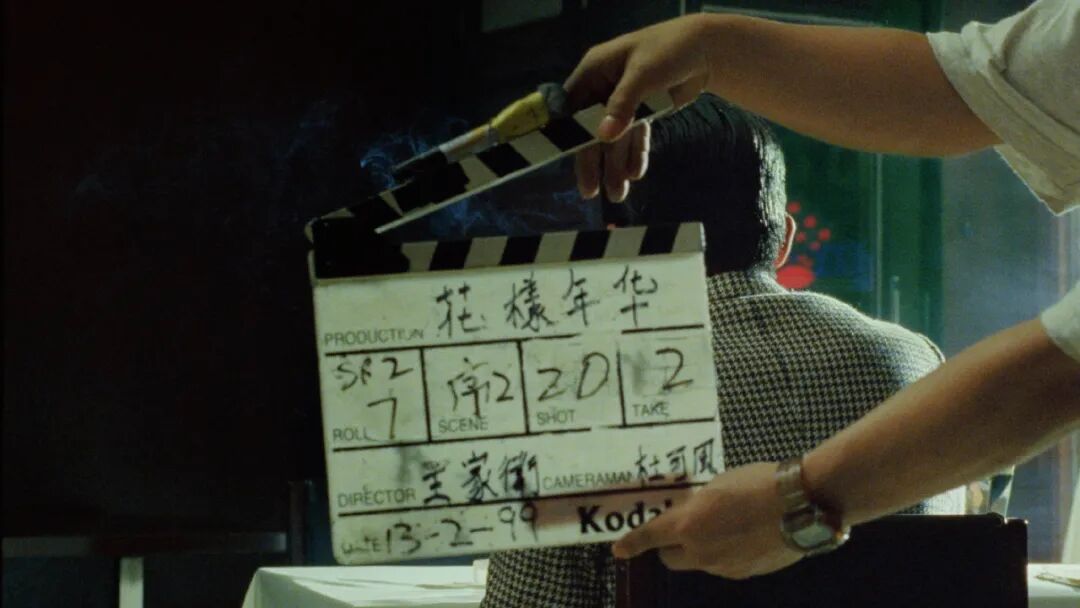 PRODUCTION 花樣年华
SR2 序12 20 2
ROLL 7 SCENE SHOT TAKE
DIRECTOR 王家衛 CAMERAMAN 杜可風
DATE 13-2-99 Kodak